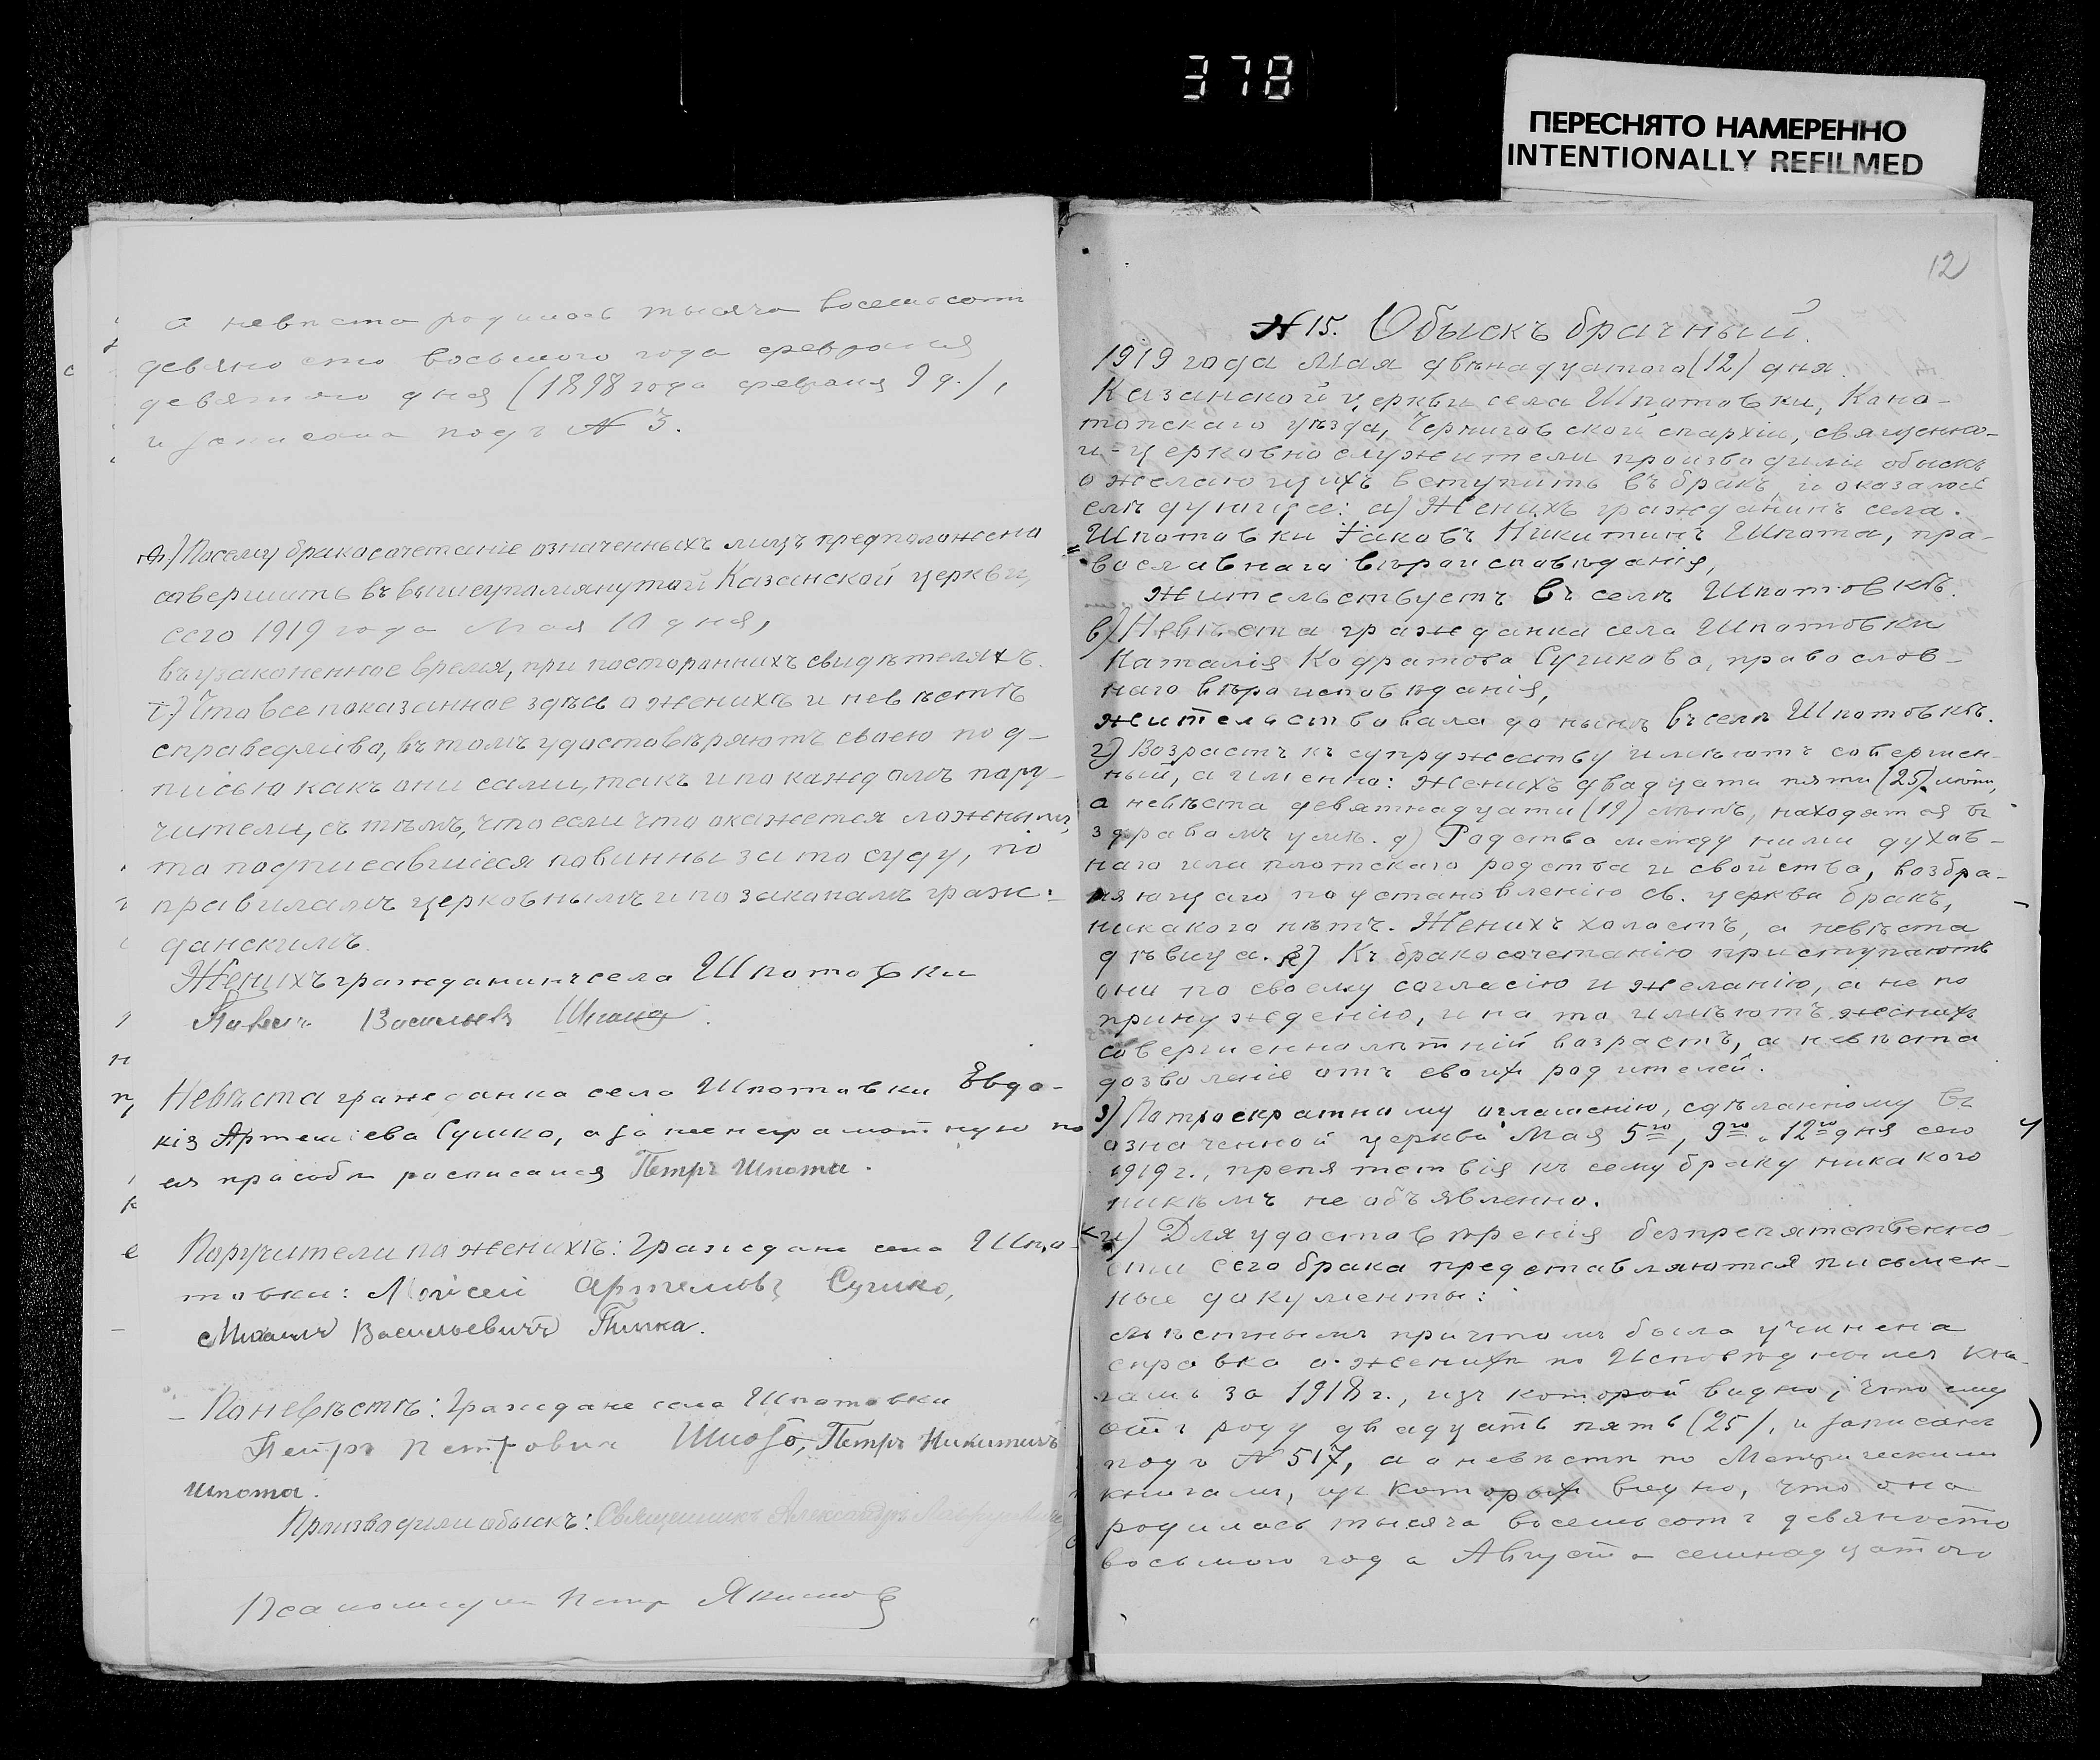 378
ПЕРЕСНЯТО НАМЕРЕННО
INTENTIONALLY REFILMED
а невѣста родилась тысяча восемьсотъ
девяносто восьмого года февраля
девятого дня (1898 года февраля 9 д.),
и записана подъ № 3.
Посему бракосочетаніе означенныхъ лицъ предположено
совершить въ вышеупомянутой Казанской церкви,
сего 1919 года Мая 10 дня,
въ узаконенное время, при постороннихъ свидѣтеляхъ.
i) Что все показанное здѣсь о женихѣ и невѣстѣ
справедливо, въ томъ удостовѣряютъ своею под-
писью какъ они сами, такъ и по каждомъ пору-
чители, съ тѣмъ, что если что окажется ложнымъ,
то подписавшіеся повинны за то суду, по
правиламъ церковнымъ и по законамъ граж-
данскимъ.
Женихъ гражданинъ села Шпотовки
Павелъ Васильевъ
Невѣста гражданка села Шпотовки Евдо-
кія Артеміева Сушко, а за нее неграмотную по
ея прозьбѣ расписался Петръ Шпота.
Поручители по женихѣ: Граждане села Шпо-
товки: Моисей Артемовъ Сушко,
Михаилъ Васильевичъ
По невѣстѣ: Граждане села Шпотовки
Петръ Петровичъ Петръ Никитичъ
Шпота.
Производили обыскъ: Священникъ Александръ
Псаломщикъ Петръ Якимовъ
12
№ 15. Обыскъ брачный.
1919 года Мая двѣнадцатого (12) дня.
Казанской церкви села Шпотовки, Коно-
топскаго уѣзда, Черниговской епархіи, священно-
и-церковно служители производили обыскъ
о желающихъ вступить въ бракъ, и оказалось
слѣдующее: а) Женихъ гражданинъ села
Шпотовки Іаковъ Никитинъ Шпота, пра-
вославнаго вѣроисповѣданія,
жительствуетъ въ селѣ Шпотовкѣ.
в) Невѣста гражданка села Шпотовки
Наталія Кодратова Сушкова, православ-
наго вѣроисповѣданія,
жительствовала до нынѣ въ селѣ Шпотовкѣ.
г) Возрастъ къ супружеству имѣютъ совершен-
ный, а именно: женихъ двадцати пяти (25) лѣтъ,
а невѣста девятнадцати (19) лѣтъ, находятся въ
здравомъ умѣ. д) Родства между ними духов-
наго или плотскаго родства и свойства, возбра-
няющаго по установленію св. церкви бракъ,
никакого нѣтъ. Женихъ холостъ, а невѣста
дѣвица. Къ бракосочетанію приступаютъ
они по своему согласію и желанію, а не по
принужденію, и на то имѣютъ женихъ
совершеннолѣтній возрастъ, а невѣста
дозволеніе отъ своихъ родителей.
з) По троекратному оглашенію, сдѣланному въ
означенной церкви Мая 5го, 9го и 12го дня сего
1919 г., препятствія къ сему браку никакого
никѣмъ не объявленно.
и) Для удостовѣренія безпрепятственно-
сти сего брака представляются письмен-
ные документы:
мѣстнымъ причтомъ была учинена
справка о женихѣ по Исповѣднымъ кни-
гамъ за 1918 г., изъ которой видно, что ему
отъ роду двадцать пять (25), и записанъ
подъ № 517, а о невѣстѣ по Метрическимъ
книгамъ, изъ которыхъ видно, что она
родилась тысяча восемьсотъ девяносто
восьмого года Августа семнадцатого